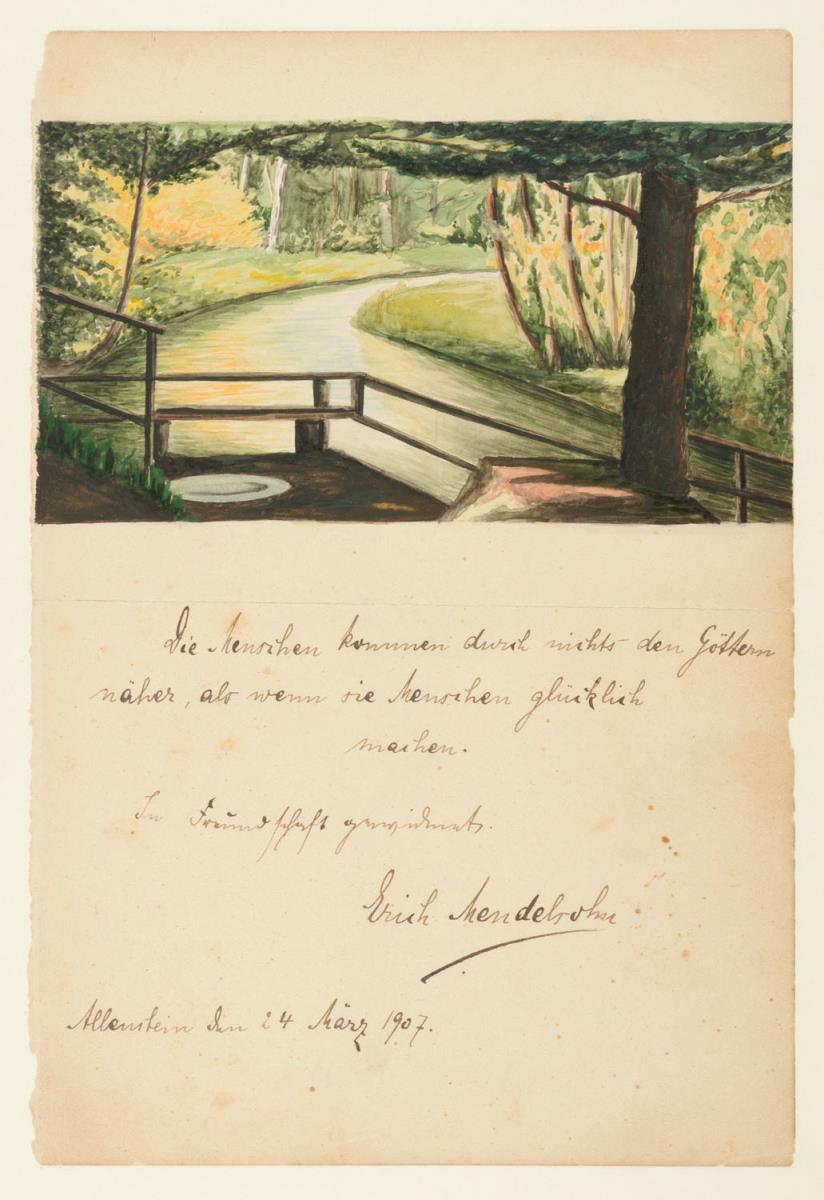 Die Menschen kommen durch nichts den Göttern
näher, als wenn sie Menschen glücklich
machen.
In Freundschaft gewidmet.
Erich Mendelsohn
Allenstein den 24 März 1907.